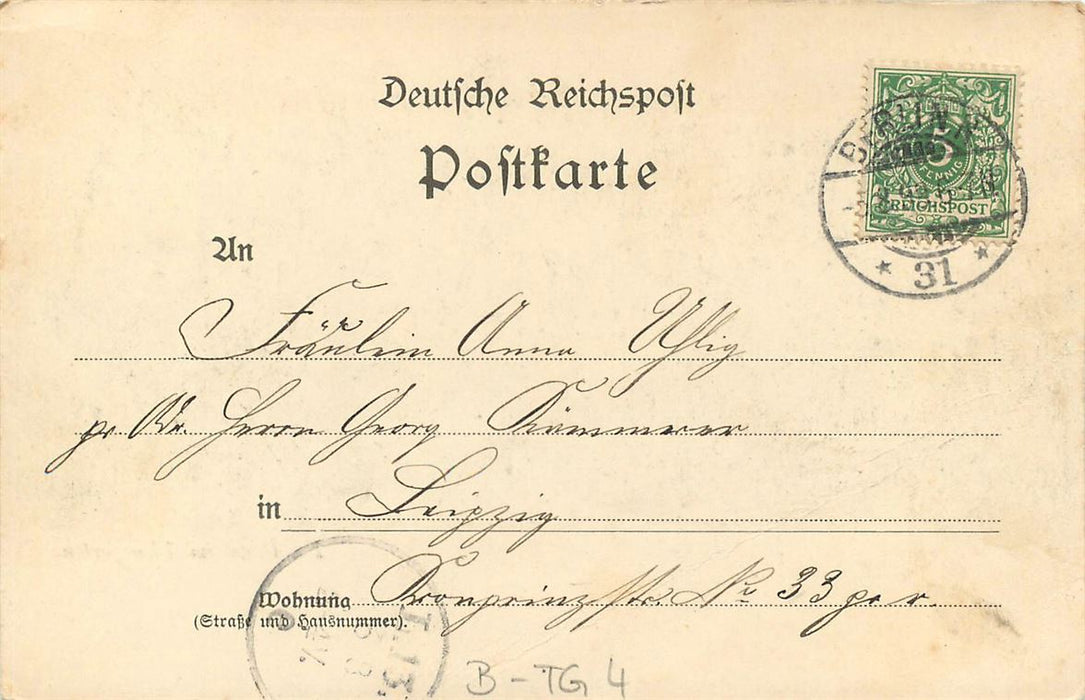 Deutsche Reichspost
Postkarte
5
PFENNIG
REICHSPOST
BERLIN N
* 31 *
An
Fräulein Anna Uhlig
pr. Adr. Herrn Georg Kämmerer
in Leipzig
Wohnung Kronprinzstr. No 33 par r.
(Straße und Hausnummer).
B - TG 4